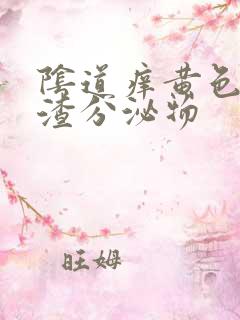 陰道痒黄色
渣分泌物
旺姆